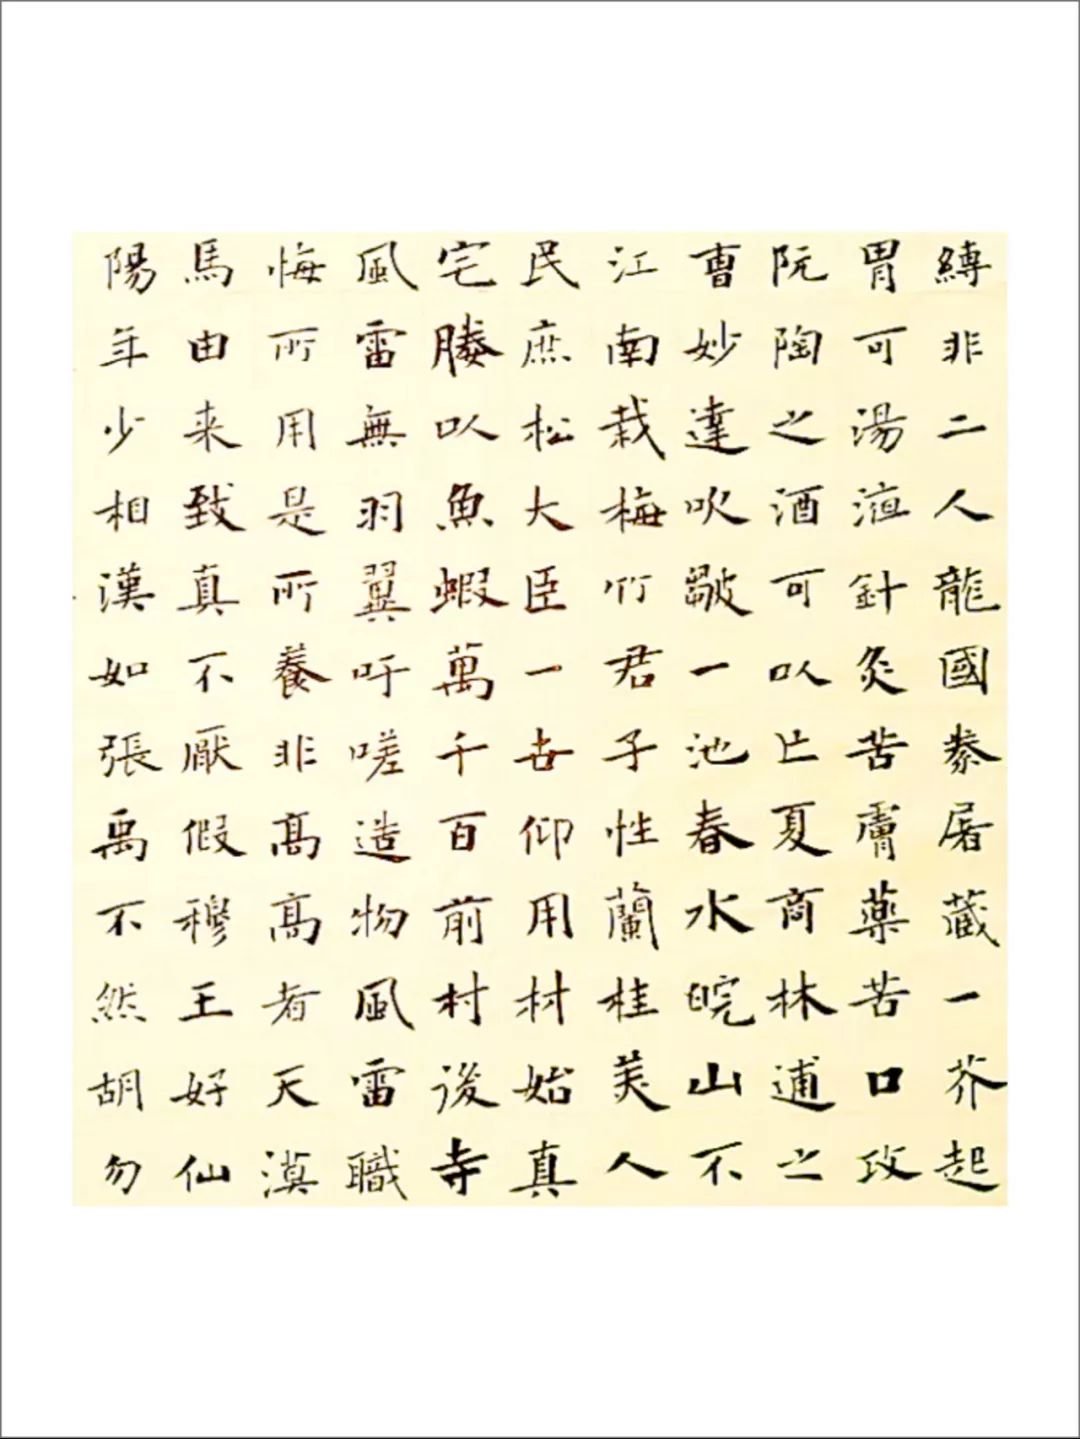 縛非二人龍國豢屠藏一芥起
胃可湯洹針灸苦膚藥苦口攻
阮陶之酒可以亡夏商林逋之
曹妙達吹皺一池春水皖山不
江南栽梅竹君子性蘭桂美人
民庶松大臣一世仰用材始真
宅媵以魚蝦萬千百前村後寺
風雷無羽翼吁嗟造物風雷職
悔所用是所養非高高者天漠
馬由来致真不厭假穆王好仙
陽年少相漢如張禹不然胡勿